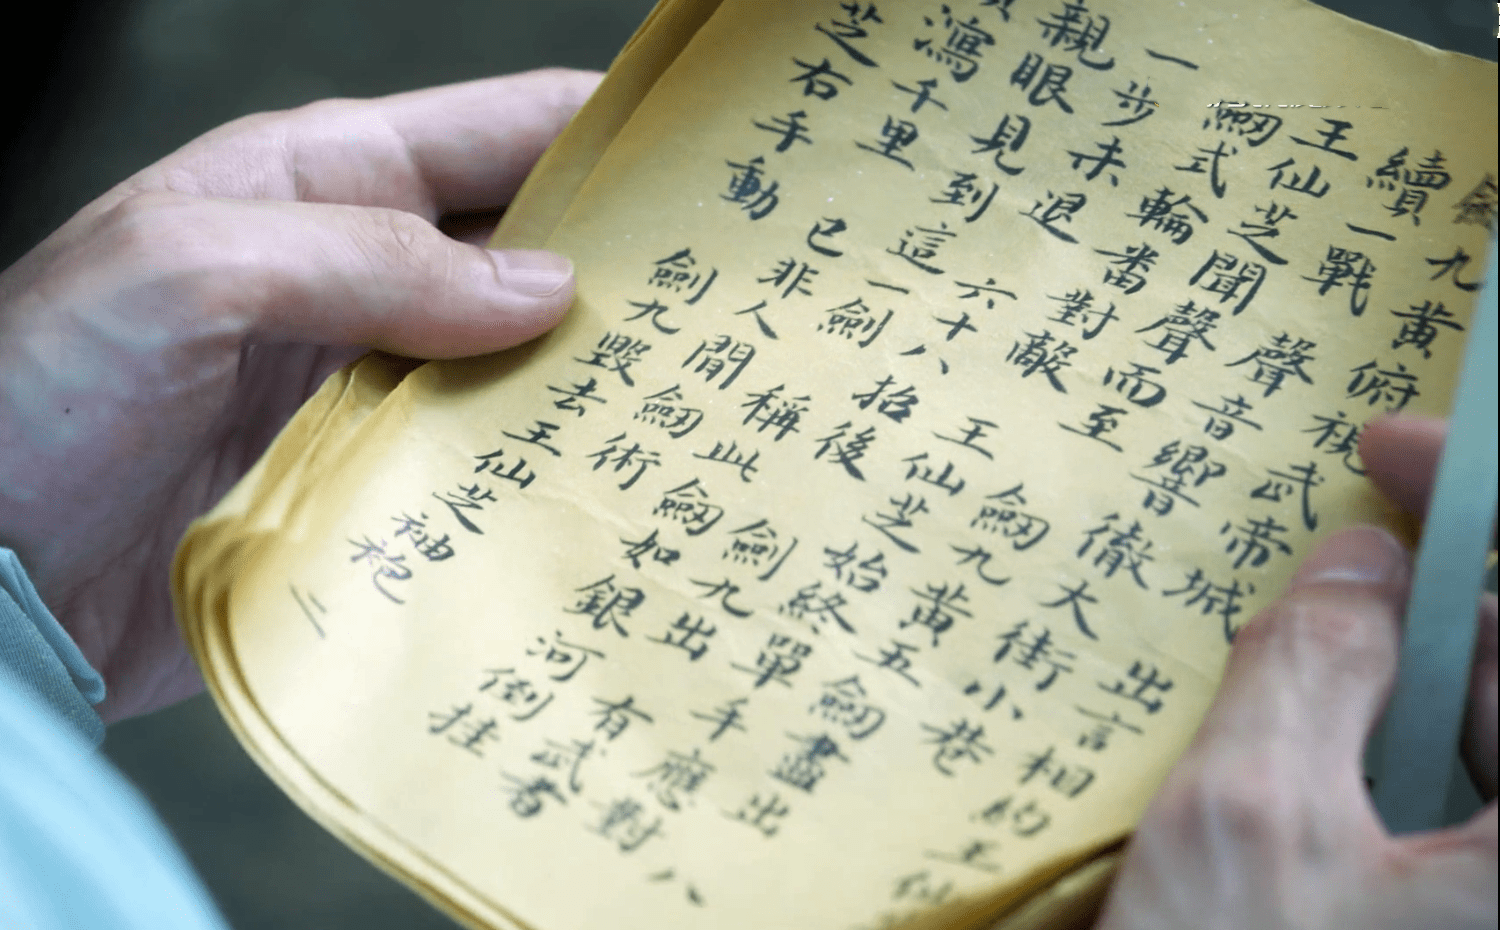 九黃俯視武帝城 出言相約王仙
續一戰 聲音響徹大街小巷
王仙芝聞聲而至 劒九黃五劒盡出 八
劒式輪番對敵 王仙芝始終單手應對
一步未退 六十八招後 劍九出 有武者
親眼見到這一劍 稱此劒如銀河倒挂
瀉千里 已非人間劒術
芝右手動 劍九毀去王仙芝袖袍二